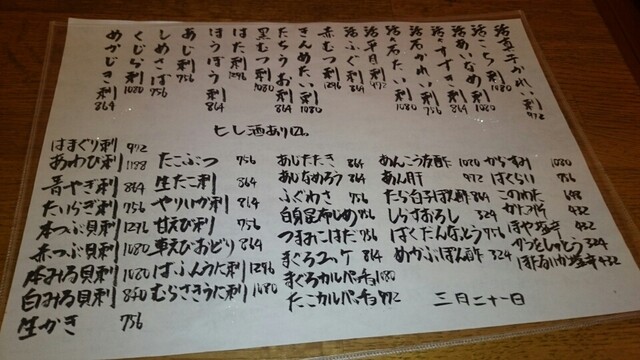 活真子かれい刺 972
活こち刺 1080
活あいなめ刺 864
活すずき刺 756
活石かれい刺 864
活石だい刺 864
活平目刺 972
活ふぐ刺 864
赤むつ刺 1296
きんめだい刺 864
たちうお刺 864
黒むつ刺 1080
はた刺 1296
ほうぼう刺 864
あじ刺 756
しめさば 756
くじら刺 1080
めかじき刺 864
ヒレ酒あり〼。
はまぐり刺 972
あわび刺 1188
青やぎ刺 864
たいらぎ刺 756
本つぶ貝刺 1296
赤つぶ貝刺 1080
本みる貝刺 1080
白みる貝刺 840
生かき 756
たこぶつ 756
生たこ刺 864
やりいか刺 864
甘えび刺 756
車えびおどり 864
ばふんうに刺 1296
むらさきうに刺 1080
あじたたき 864
あじなめろう 864
ふぐわさ 756
白貝昆布じめ 756
つまみこはだ 756
まぐろユッケ 864
まぐろカルパッチョ 1080
たこカルパッチョ 972
あんこう友酢 1080
あん肝 972
たら白子ぽん酢 864
しらすおろし 324
ばくだんなっとう 756
めかぶぽん酢 324
からすみ 1080
ばくらい 756
このわた 648
432
ほや塩辛 432
かつおしゅとう 324
ほたるいか塩辛 432
三月二十一日